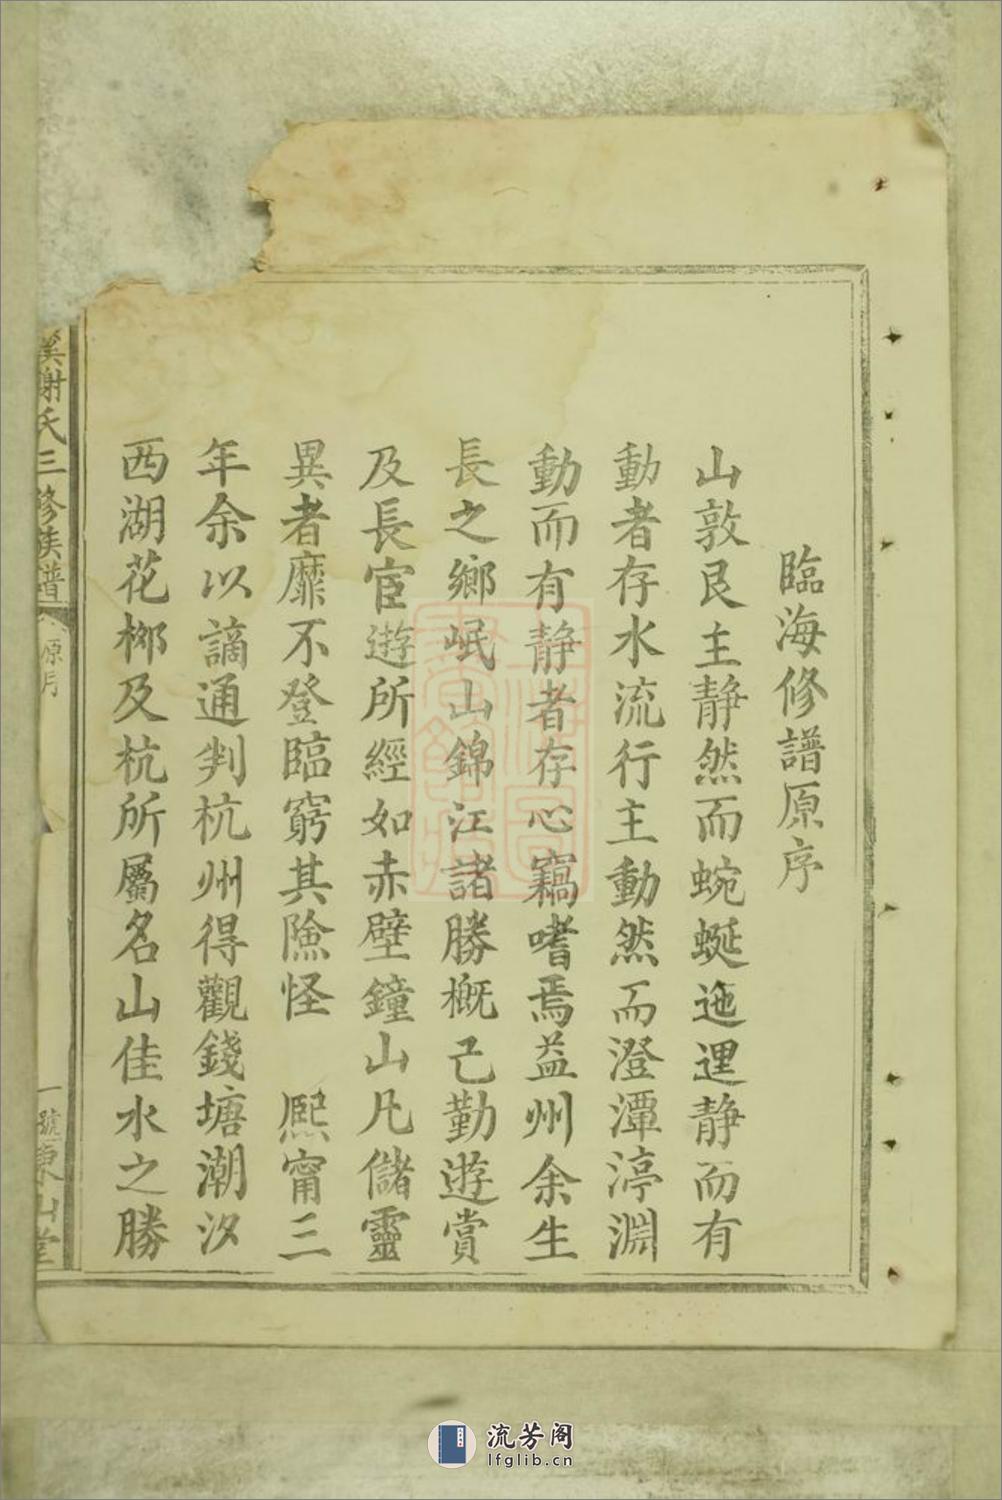 臨海修譜原序
山敦艮主靜然而蜿蜒迤逦靜而有
動者存水流行主動然而澄潭渟淵
動而有靜者存心竊嗜焉益州余生
長之鄉岷山錦江諸勝概已勤遊賞
及長宦遊所經如赤壁鐘山凡儲靈
異者靡不登臨窮其險怪 熙甯三
年余以謫通判杭州得觀錢塘潮汐
西湖花栁及杭所屬名山佳水之勝
謝氏三修族譜
原
一號東山堂
流芳阁
lfglib.cn